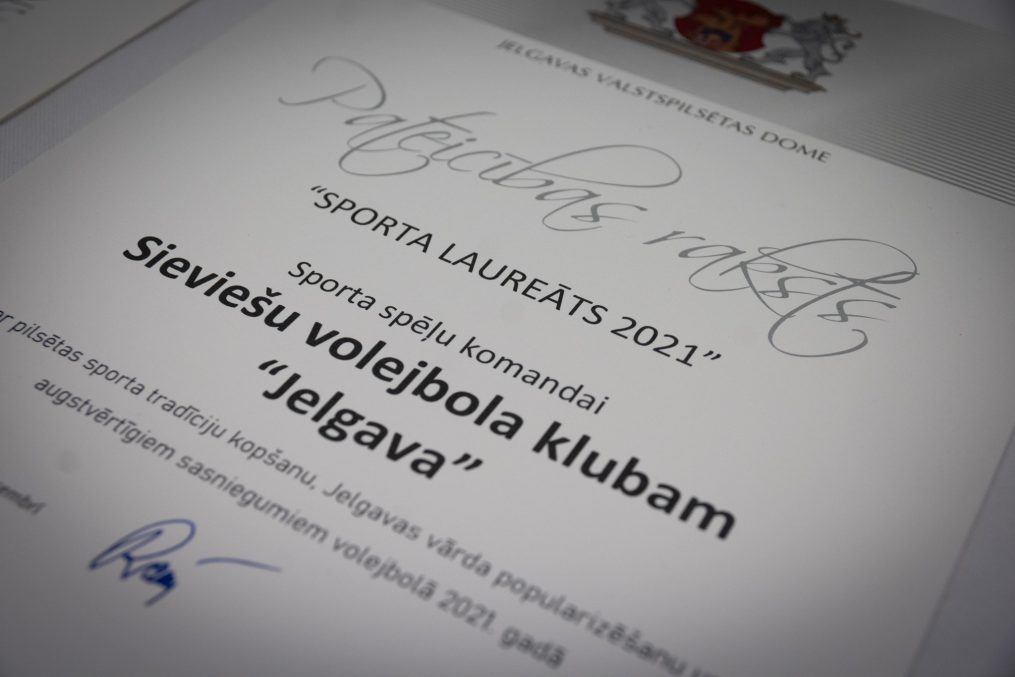 JELGAVAS VALSTSPILSĒTAS DOME
Pateicības raksts
“SPORTA LAUREĀTS 2021”
Sporta spēļu komandai
Sieviešu volejbola klubam
“Jelgava”
pilsētas sporta tradīciju kopšanu, Jelgavas vārda popularizēšanu
augstvērtīgiem sasniegumiem volejbolā 2021. gadā